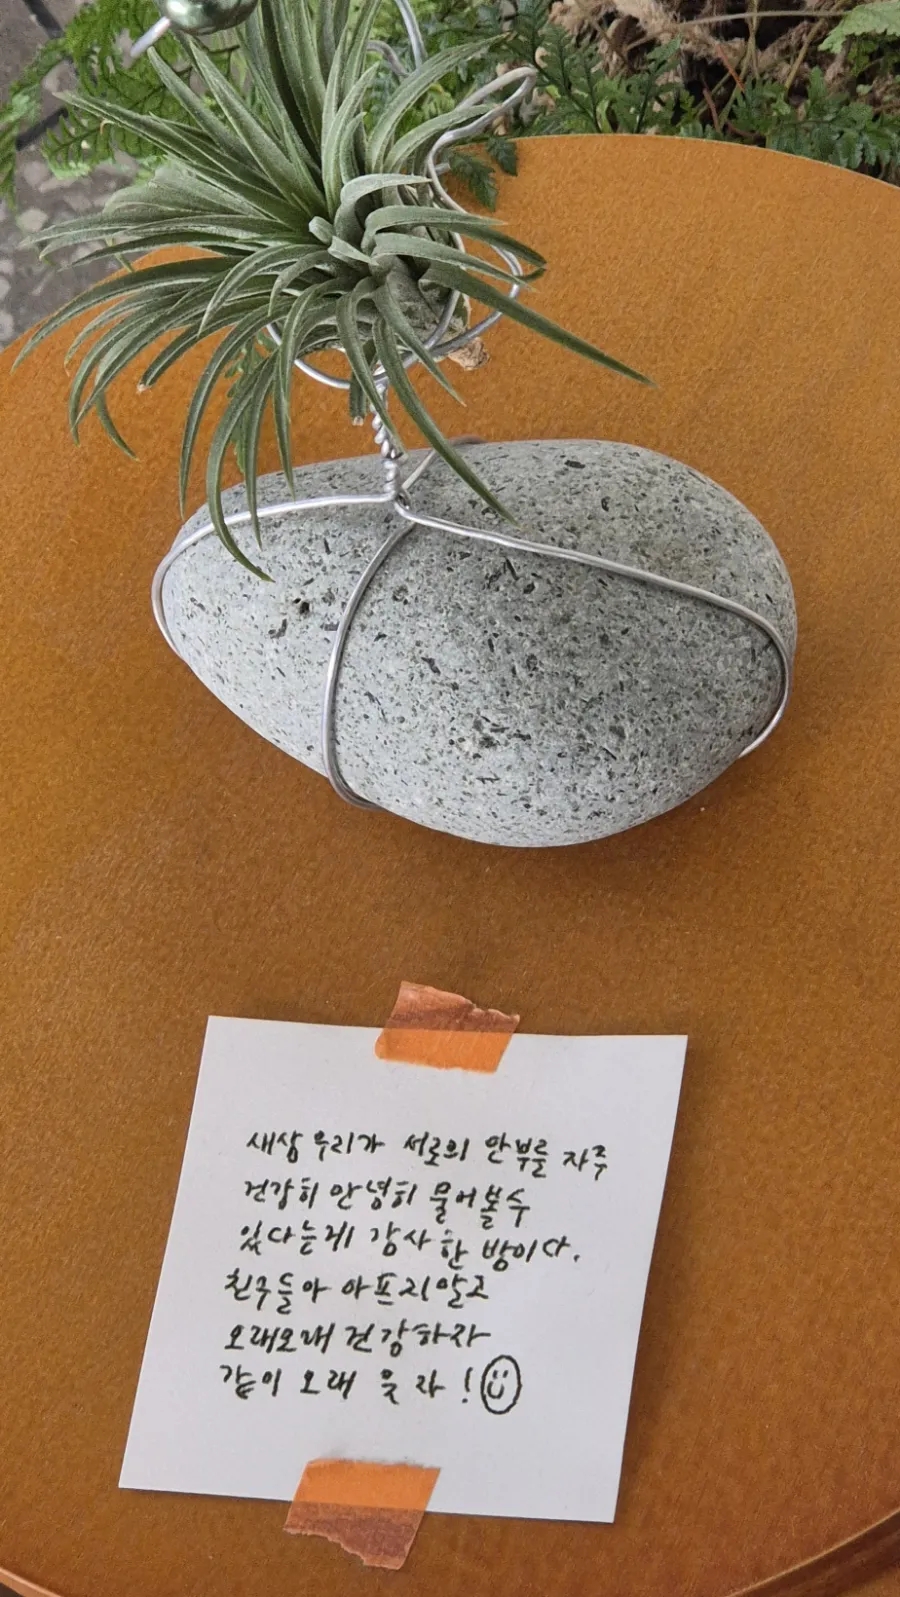 새삼 우리가 서로의 안부를 자주
건강히 안녕히 물어볼수
있다는게 감사한 밤이다.
친구들아 아프지말고
오래오래 건강하자
같이 오래 웃자!